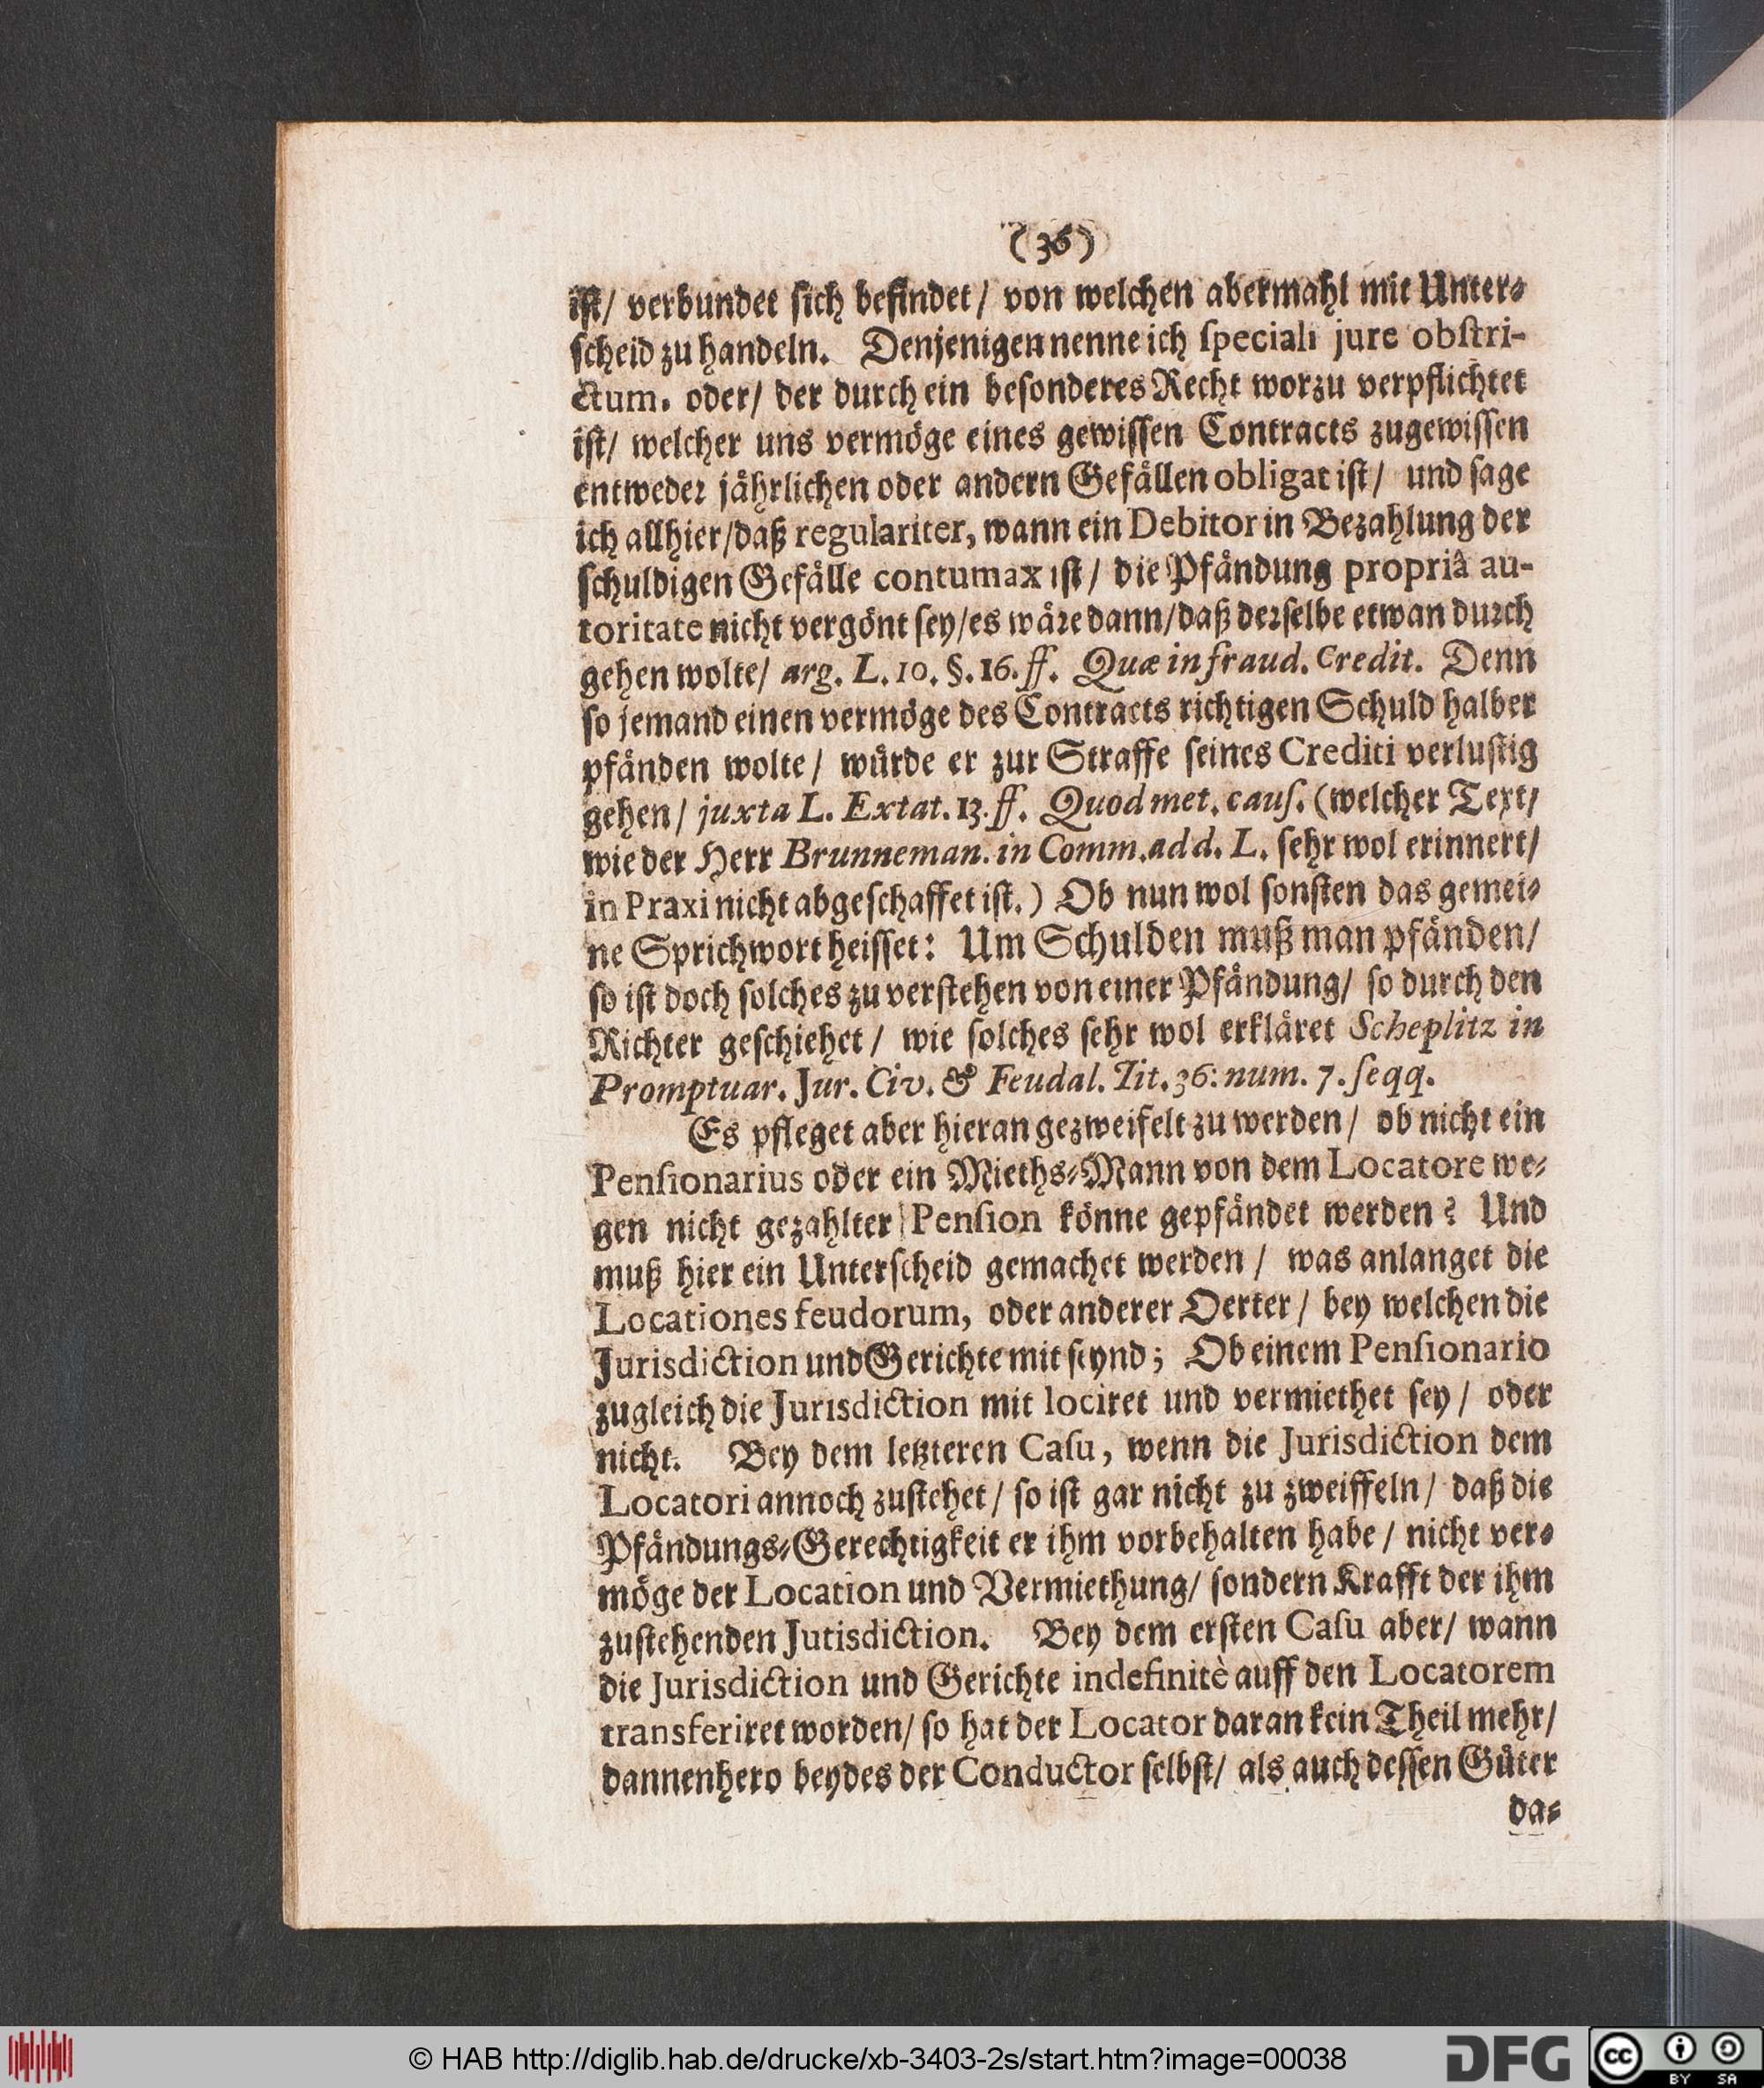 (36)
iſt/ verbundet ſich befindet/ von welchen abermahl mit Unter-
ſcheid zu handeln. Denjenigen nenne ich ſpeciali jure obſtri-
ctum. oder/ der durch ein beſonderes Recht worzu verpflichtet
iſt/ welcher uns vermöge eines gewiſſen Contracts zugewiſſen
entweder jährlichen oder andern Gefällen obligat iſt/ und ſage
ich allhier/daß regulariter, wann ein Debitor in Bezahlung der
ſchuldigen Gefälle contumax iſt/ die Pfändung propriâ au-
toritate nicht vergönt ſey/es wäre dann/daß derſelbe etwan durch
gehen wolte/ arg. L. 10. §. 16. ff. Quæ in fraud. Credit. Denn
ſo jemand einen vermöge des Contracts richtigen Schuld halber
pfänden wolte/ würde er zur Straffe ſeines Crediti verluſtig
gehen/ juxta L. Extat. 13. ff. Quod met. cauſ. (welcher Text/
wie der Herr Brunneman. in Comm. ad d. L. ſehr wol erinnert/
in Praxi nicht abgeſchaffet iſt.) Ob nun wol ſonſten das gemei-
ne Sprichwort heiſſet: Um Schulden muß man pfänden/
ſo iſt doch ſolches zu verſtehen von einer Pfändung/ ſo durch den
Richter geſchiehet/ wie ſolches ſehr wol erkläret Scheplitz in
Promptuar. Jur. Civ. & Feudal. Tit. 36: num. 7. ſeqq.
Es pfleget aber hieran gezweifelt zu werden/ ob nicht ein
Penſionarius oder ein Mieths-Mann von dem Locatore we-
gen nicht gezahlter Penſion könne gepfändet werden? Und
muß hier ein Unterſcheid gemachet werden/ was anlanget die
Locationes feudorum, oder anderer Oerter/ bey welchen die
Jurisdiction und Gerichte mit ſeynd; Ob einem Penſionario
zugleich die Jurisdiction mit lociret und vermiethet ſey/ oder
nicht. Bey dem letzteren Caſu, wenn die Jurisdiction dem
Locatori annoch zuſtehet/ ſo iſt gar nicht zu zweiffeln/ daß die
Pfändungs-Gerechtigkeit er ihm vorbehalten habe/ nicht ver-
möge der Location und Vermiethung/ ſondern Krafft der ihm
zuſtehenden Jutisdiction. Bey dem erſten Caſu aber/ wann
die Jurisdiction und Gerichte indefinitè auff den Locatorem
transferiret worden/ ſo hat der Locator daran kein Theil mehr/
dannenhero beydes der Conductor ſelbſt/ als auch deſſen Güter
da-
© HAB http://diglib.hab.de/drucke/xb-3403-2s/start.htm?image=00038
DFG
cc BY SA